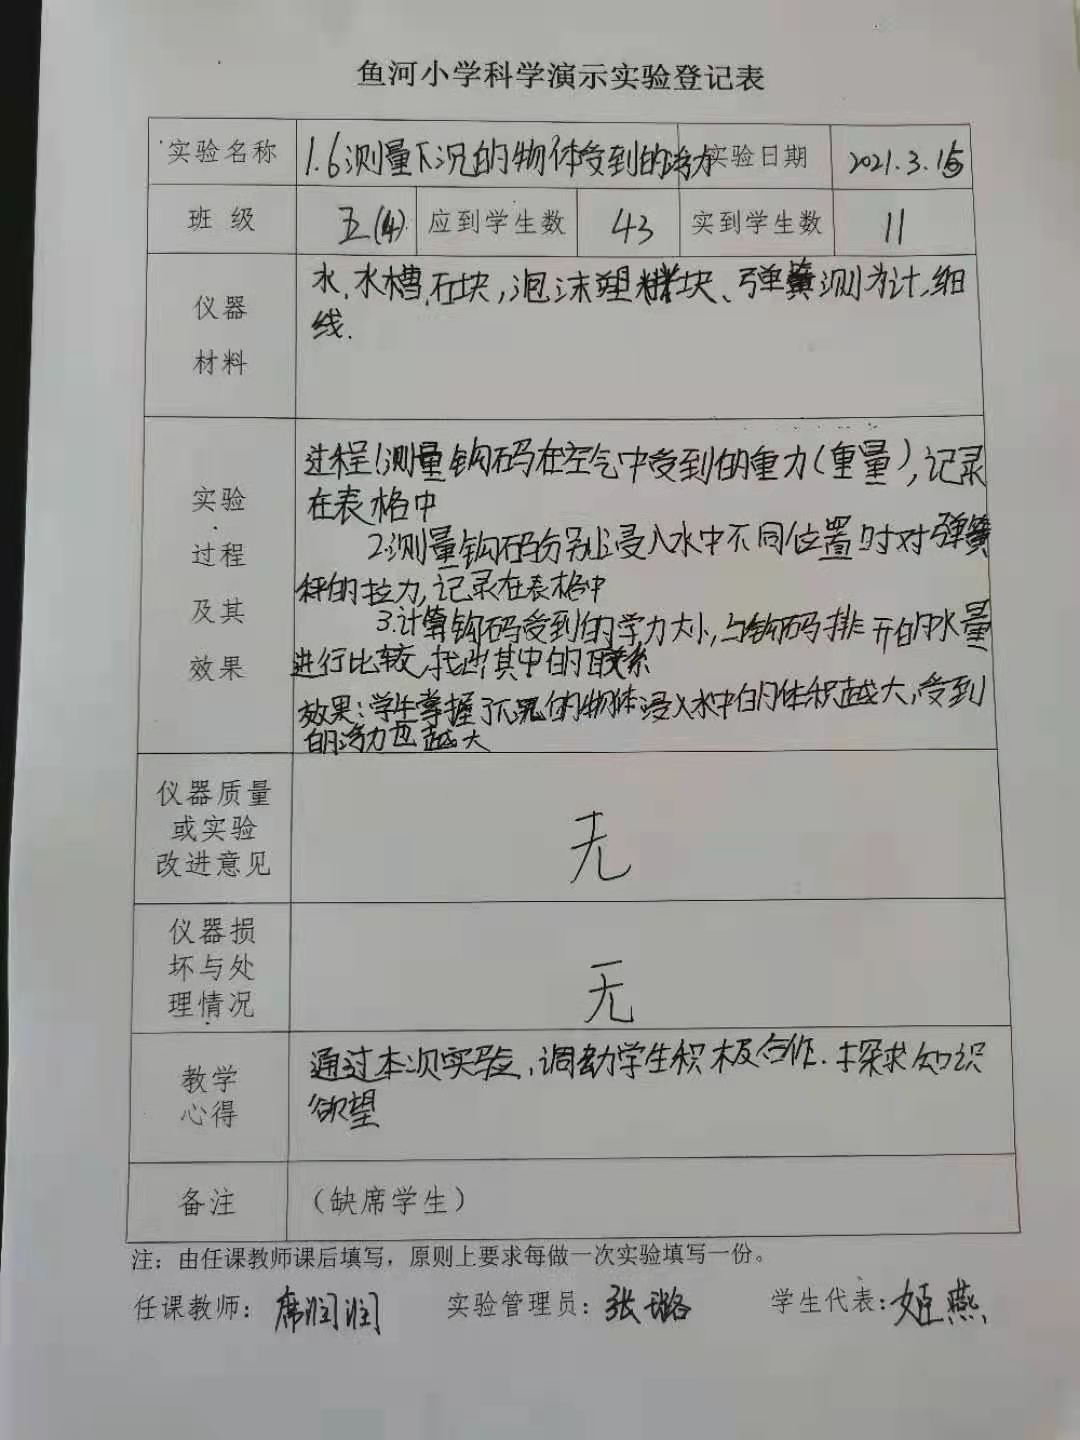 鱼河小学科学演示实验登记表
实验名称 1.6测量下沉的物体受到的浮力 实验日期 2021.3.15
班 级 五(4) 应到学生数 43 实到学生数 11
仪器
材料
水、水槽、石块,泡沫塑料块、弹簧测力计、细
线.
实验
过程
及其
效果
过程1.测量钩码在空气中受到的重力(重量),记录
在表格中
2.测量钩码分别浸入水中不同位置时对弹簧
秤的拉力,记录在表格中
3.计算钩码受到的浮力大小,与钩码排开的水量
进行比较,找出其中的联系
效果:学生掌握了下沉的物体浸入水中的体积越大,受到
的浮力也越大
仪器质量
或实验
改进意见
无
仪器损
坏与处
理情况
无
教学
心得
通过本次实验,调动学生积极合作.探求知识
欲望
备注 (缺席学生)
注:由任课教师课后填写,原则上要求每做一次实验填写一份。
任课教师:席润润 实验管理员:张璐 学生代表:姬燕